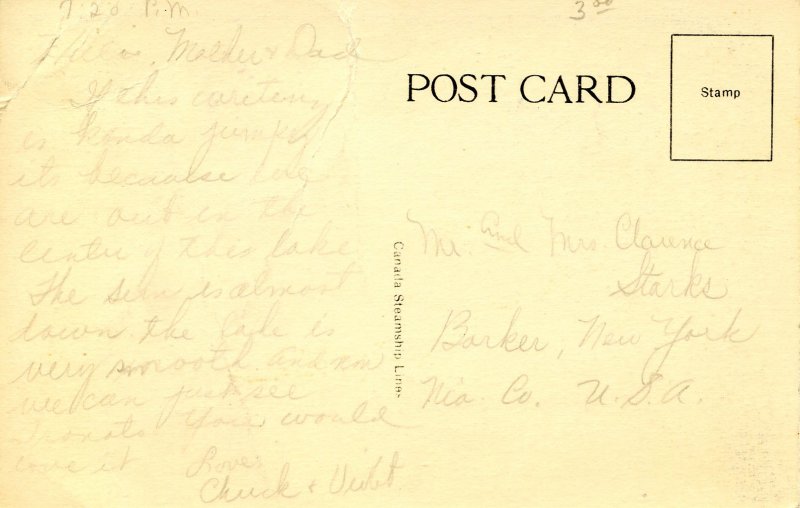 7:20 P.M.
3 00
Hello, Mother & Dad
If this writeing
is kinda jumpey
its because we
are out in the
center of this lake
The sun is almost
down the lake is
very smooth and
we can just see
You would
love it Love,
Chuck & Violet
POST CARD
Stamp
Canada Steamship Lines
Mr. and Mrs. Clarence
Starks
Barker, New York
Nia Co. U.S.A.